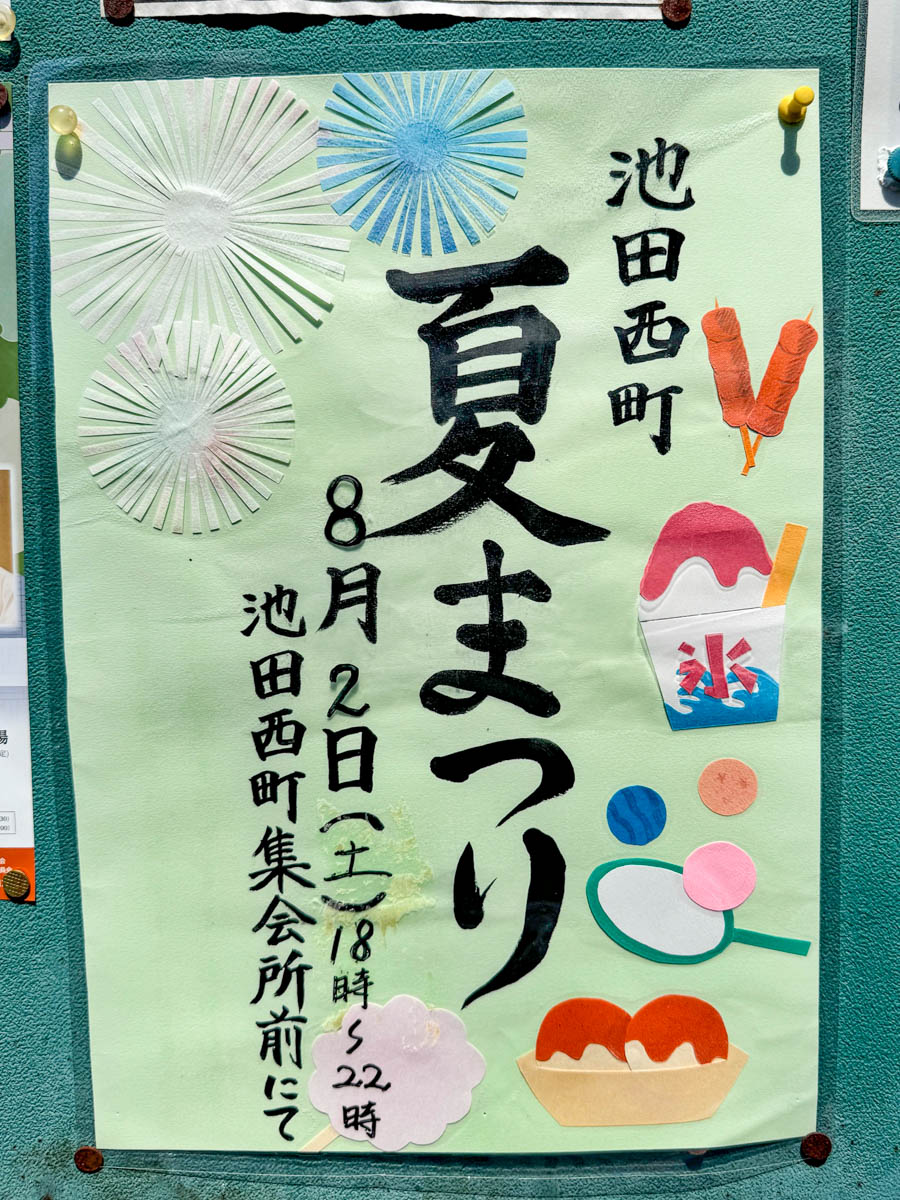 池田西町
夏まつり
8月2日(土)18時〜22時
池田西町集会所前にて
氷